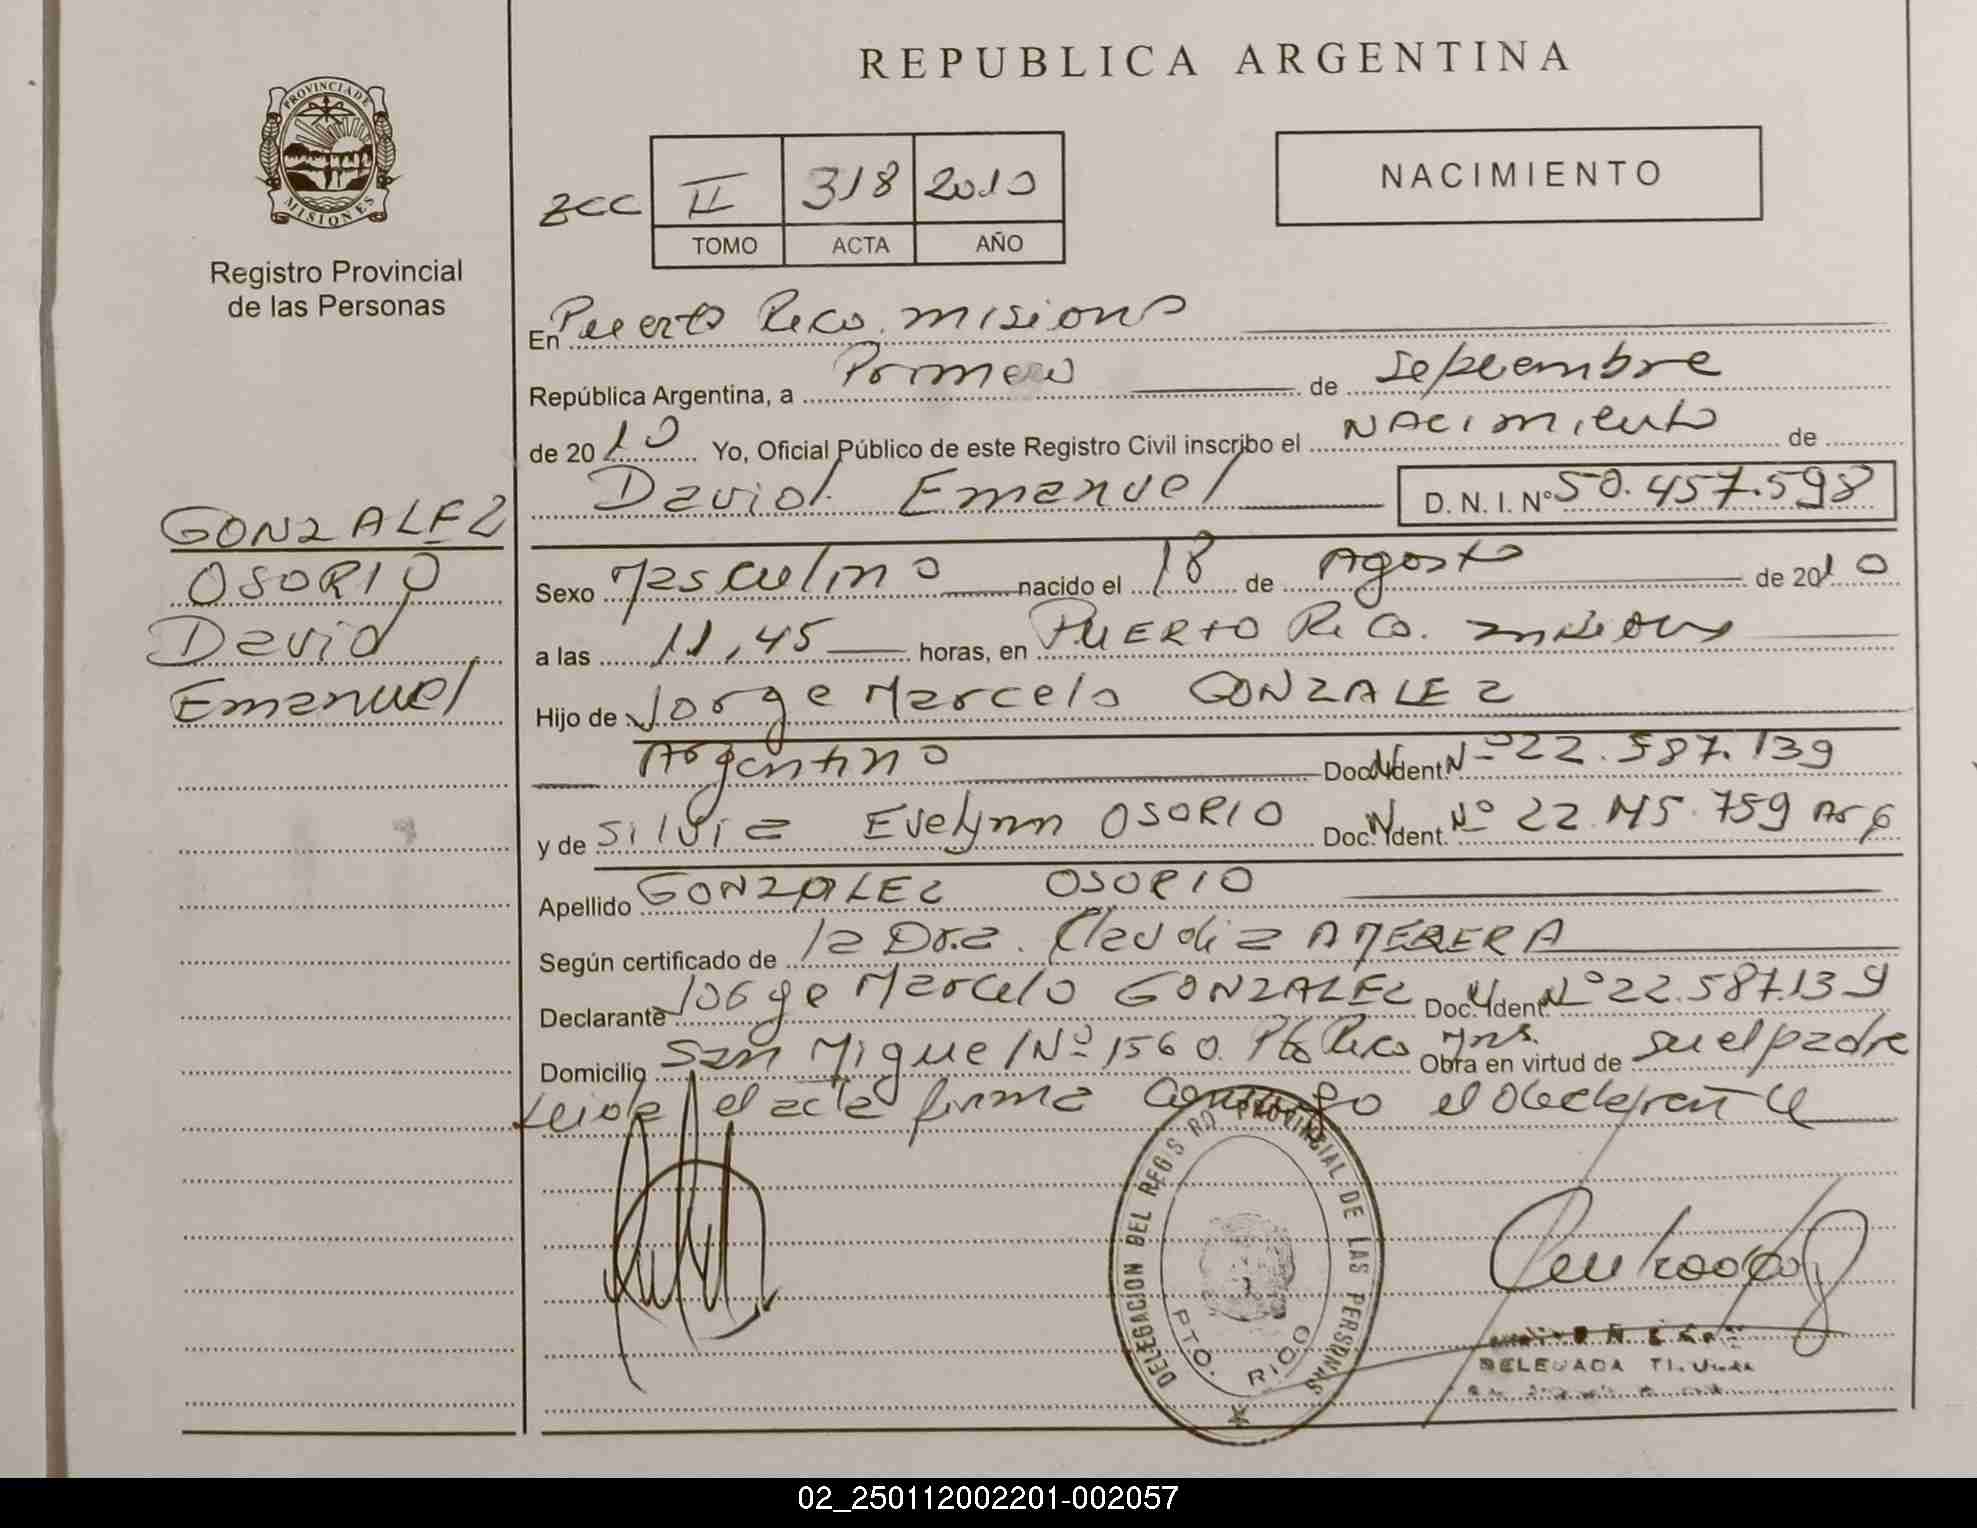 REPUBLICA ARGENTINA
PROVINCIA DE MISIONES
Registro Provincial
de las Personas
NACIMIENTO
II 318 2010
TOMO ACTA AÑO
En Puerto Rico. misiones
República Argentina, a Primero de septiembre
de 2010 Yo, Oficial Público de este Registro Civil inscribo el NACimiento de
David Emanuel D. N. I. Nº 50.457.598
GONZALEZ
OSORIO
David
Emanuel
Sexo Masculino nacido el 18 de Agosto de 2010
a las 11,45 horas, en PUERTO RICO. misiones
Hijo de Jorge Marcelo GONZALEZ
Argentino Doc. Ident. Nº 22.587.139
y de Silvia Evelynn OSORIO Doc. Ident. Nº 22. .759 Arg
Apellido GONZALEZ OSORIO
Según certificado de la Dra. Claudia
Declarante Jorge Marcelo GONZALEZ Doc. Ident. Nº 22.587.139
Domicilio San Miguel Nº 1560. Pto Rico Mns. Obra en virtud de su el padre
Leida el acta firma conmigo el declarante
DELEGACION DEL REGISTRO PROVINCIAL DE LAS PERSONAS
PTO. RICO
DELEGADA TITULAR
02_250112002201-002057